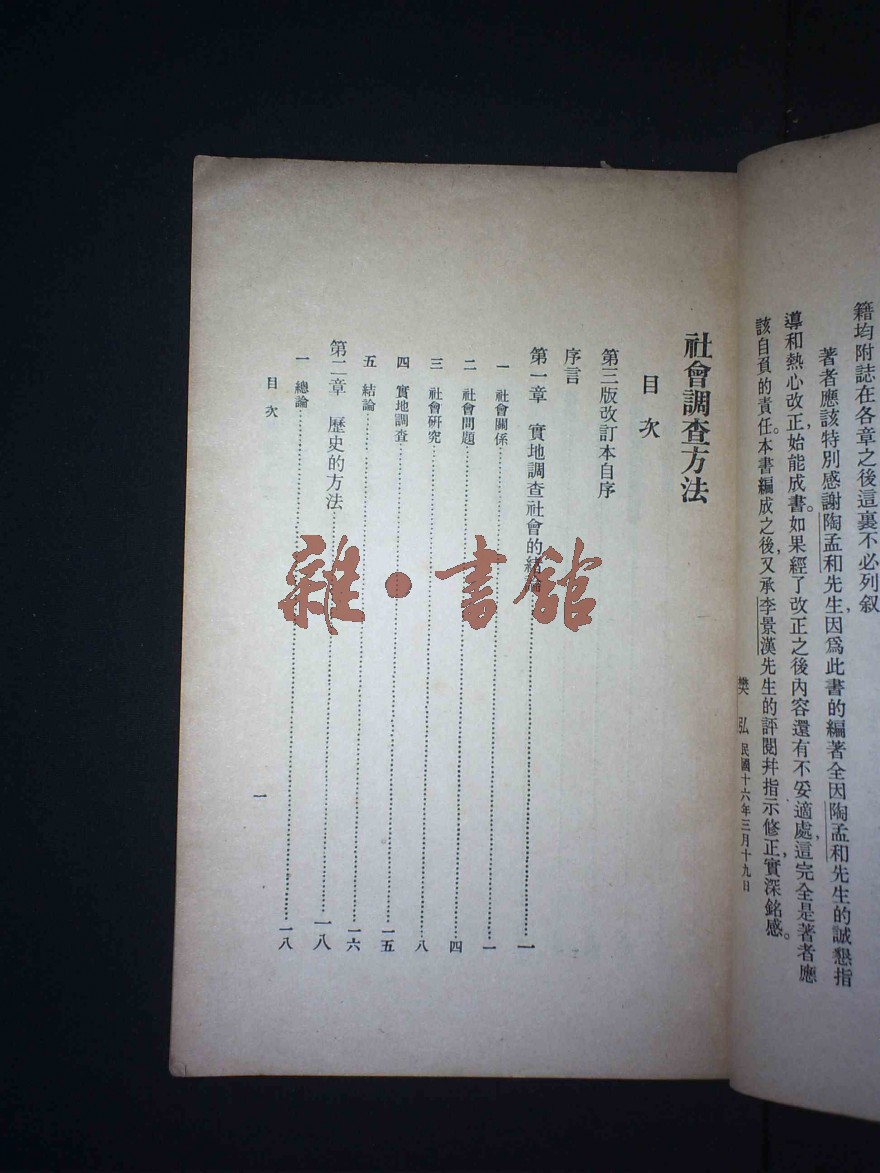 籍均附誌在各章之後這裏不必列叙
著者應該特別感謝陶孟和先生，因爲此書的編著全因陶孟和先生的誠懇指
導和熱心改正，始能成書。如果經了改正之後內容還有不妥適處，這完全是著者應
該自負的責任。本書編成之後，又承李景漢先生的評閱并指示修正，實深銘感。
樊弘 民國十六年三月十九日
社會調查方法
目次
第三版改訂本自序
序言
第一章 實地調查社會的緒論……一
一 社會關係……一
二 社會問題……四
三 社會研究……八
四 實地調查……一五
五 結論……一六
第二章 歷史的方法……一八
一 總論……一八
目次
一
雜·書館